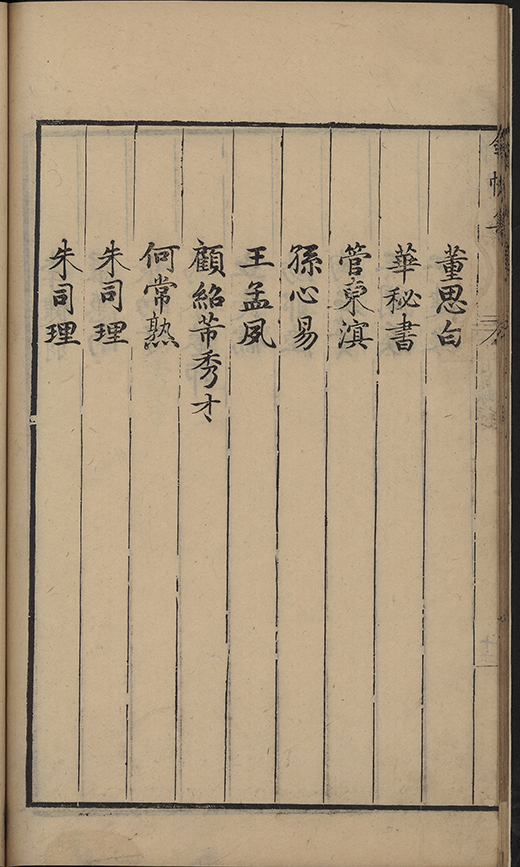 董思白
華秘書
管東溟
孫心易
王孟夙
顧紹芾秀才
何常熟
朱司理
朱司理